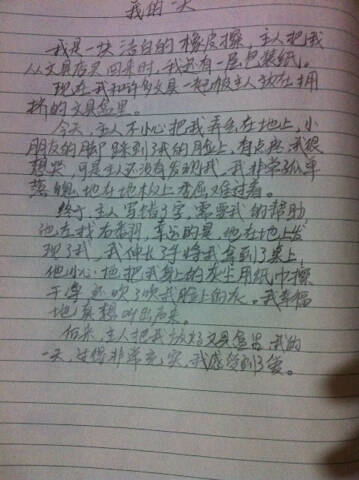 我的一天
我是一块洁白的橡皮擦,主人把我
从文具店买回来时,我还有一层包装纸。
现在我和许多文具一起被主人放在拥
挤的文具盒里。
今天,主人不小心把我弄丢在地上,小
朋友的脚踩到了我的脸上,有点疼,我很
想哭,可是主人还没有发现我,我非常孤单
落魄地在地板上委屈难过着。
终于,主人写错了字,需要我的帮助,
他在找右看到,幸亏的是,他在地上发
现了我,他伸长了手将我拿到了桌上,
他小心地把我身上的灰尘用纸巾擦
干净,还吹了吹我脸上的灰。我幸福
地真想叫出声来。
后来,主人把我放好文具盒里,我的
一天,过得非常充实,我感受到了爱。